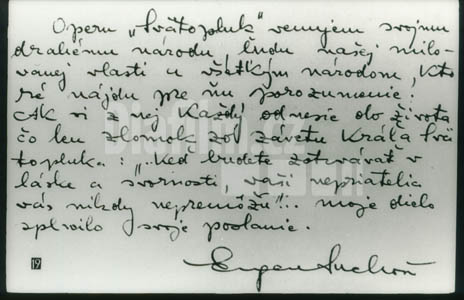 Operu „Svätopluk" venujem svojmu
drahému národu ľudu našej milo-
vanej vlasti a všetkým národom, kto-
ré nájdu pre ňu porozumenie:
Ak si z nej každý odnesie do života
čo len zlomok zo závetu Kráľa Svä-
topluka: „.. Keď budete zotrvávať v
láske a svornosti, vaši nepriatelia
vás nikdy nepremôžu!.. moje dielo
splnilo svoje poslanie.
Eugen Suchoň
19